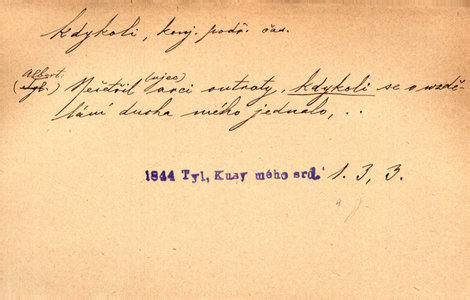 kdykoli, konj. podř. čas.
Albert.
(Tyl.) Nešetřil (ujec) arci outraty, kdykoli se o vzdě-
lání ducha mého jednalo, ..
1844 Tyl, Kusy mého srd. 1. 3, 3.